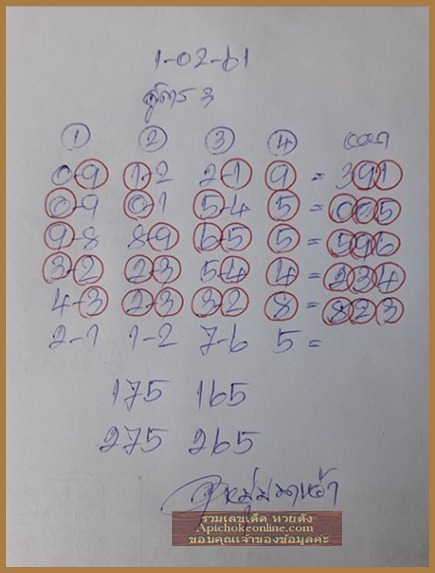 1-02-61
สูตร 3
1 2 3 4 ออก
0-9 1-2 2-1 9 = 391
0-9 0-1 5-4 5 = 005
9-8 8-9 6-5 5 = 596
3-2 2-3 5-4 4 = 234
4-3 2-3 3-2 8 = 823
2-1 1-2 7-6 5 =
175 165
275 265
รวมเลขเด็ด หวยดัง
Apichokeonline.com
ขอบคุณเจ้าของข้อมูลค่ะ